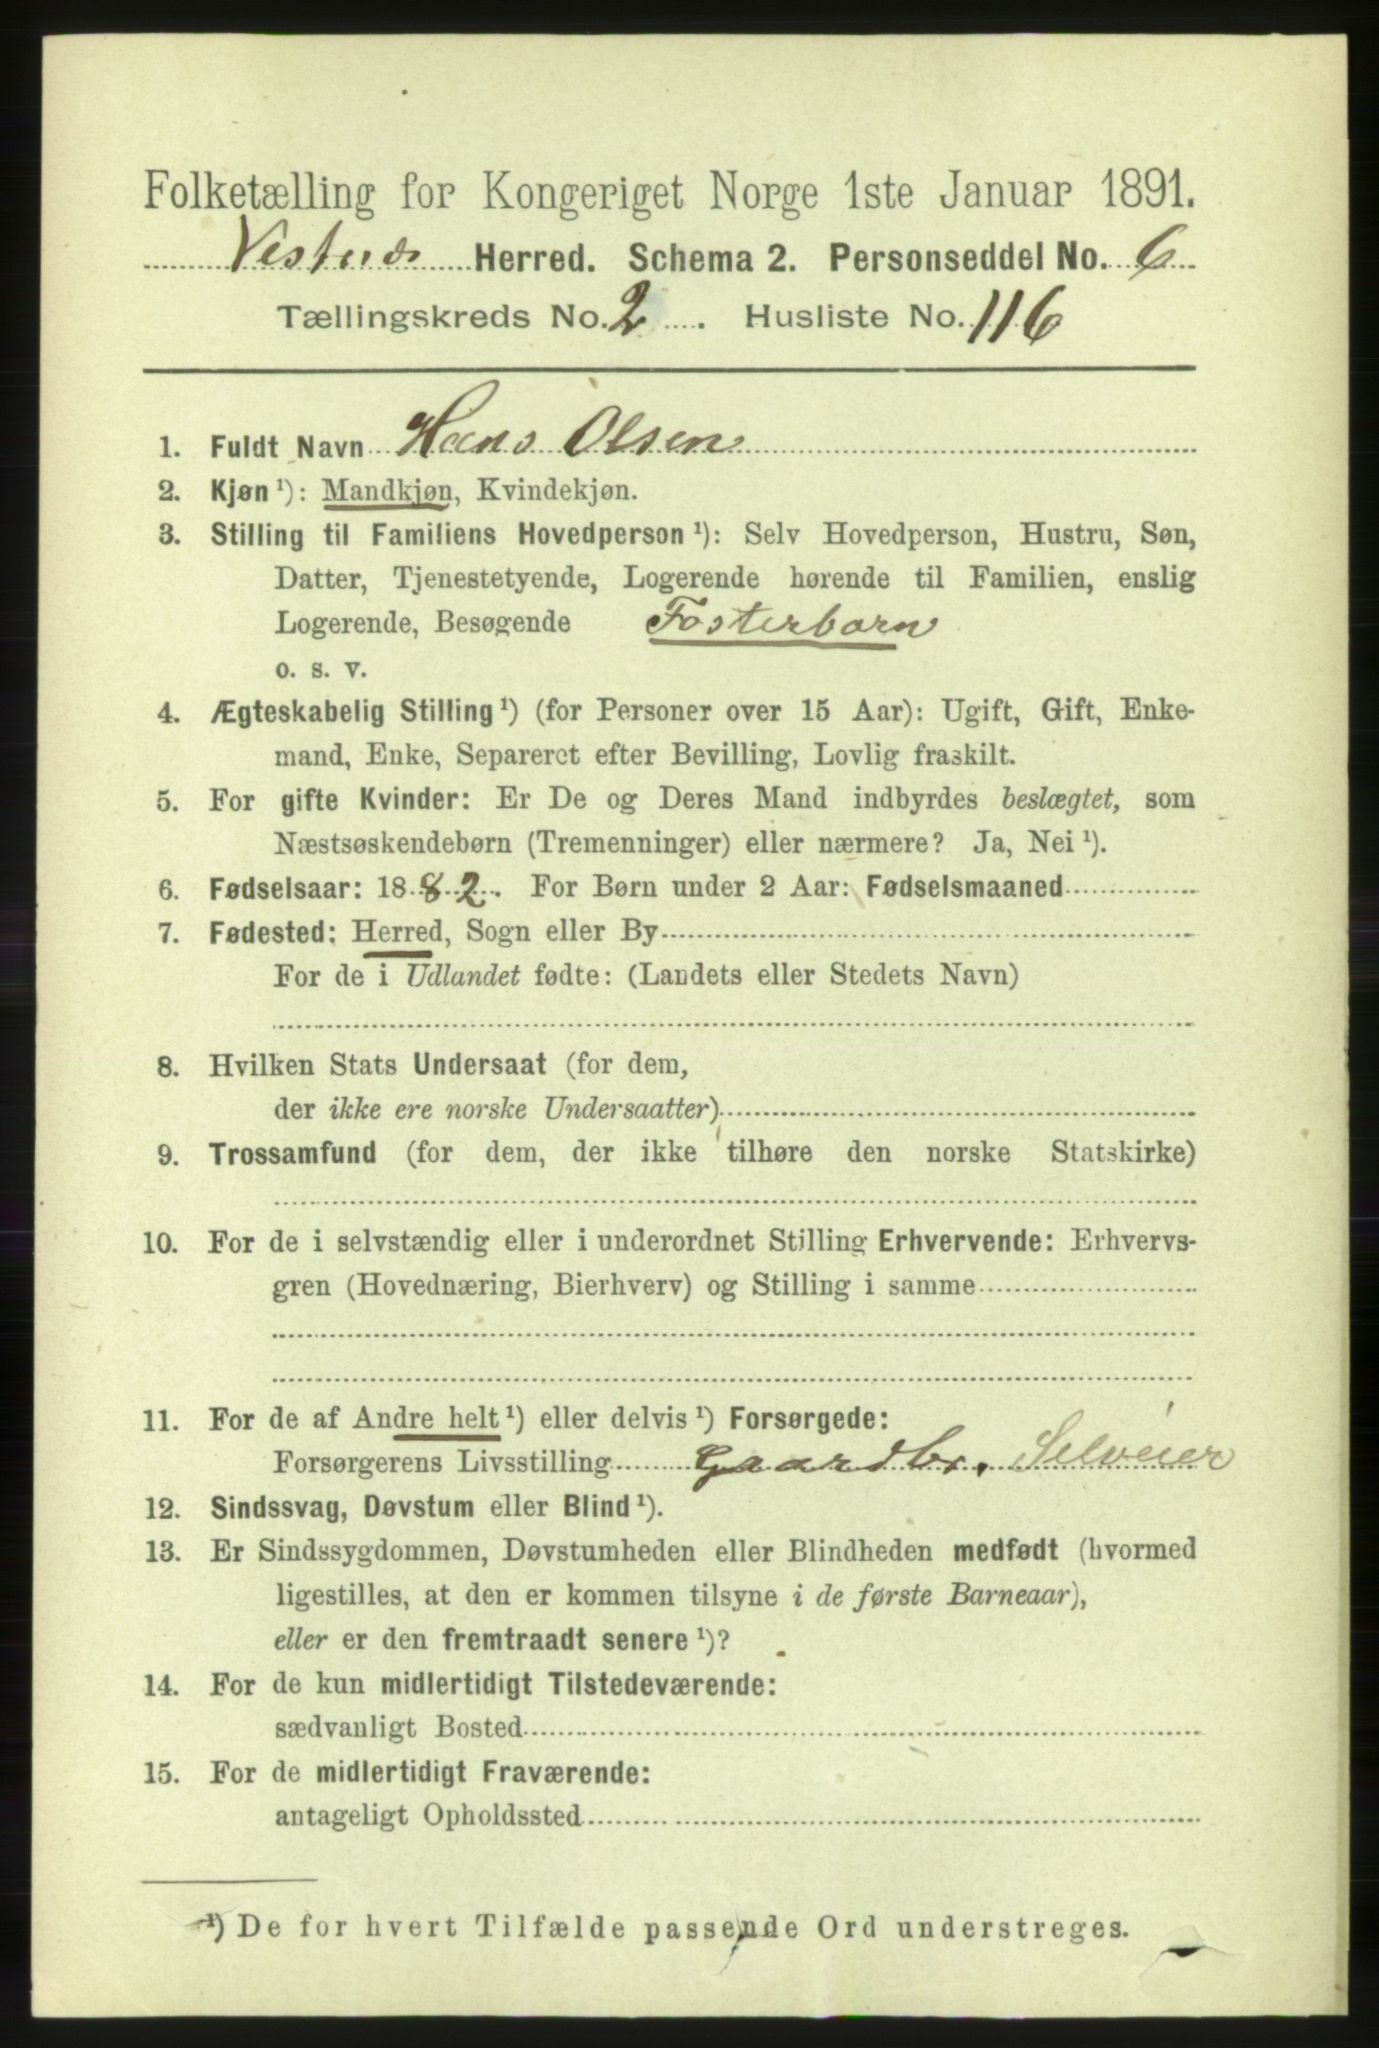 Folketælling for Kongeriget Norge 1ste Januar 1891.
Vestnæs Herred. Schema 2. Personseddel No. 6
Tællingskreds No. 2. Husliste No. 116
1. Fuldt Navn Hans Olsen
2. Kjøn ¹): Mandkjøn, Kvindekjøn.
3. Stilling til Familiens Hovedperson ¹): Selv Hovedperson, Hustru, Søn,
Datter, Tjenestetyende, Logerende hørende til Familien, enslig
Logerende, Besøgende Fosterbarn
o. s. v.
4. Ægteskabelig Stilling ¹) (for Personer over 15 Aar): Ugift, Gift, Enke-
mand, Enke, Separeret efter Bevilling, Lovlig fraskilt.
5. For gifte Kvinder: Er De og Deres Mand indbyrdes beslægtet, som
Næstsøskendebørn (Tremenninger) eller nærmere? Ja, Nei ¹).
6. Fødselsaar: 1882. For Børn under 2 Aar: Fødselsmaaned
7. Fødested: Herred, Sogn eller By
For de i Udlandet fødte: (Landets eller Stedets Navn)
8. Hvilken Stats Undersaat (for dem,
der ikke ere norske Undersaatter)
9. Trossamfund (for dem, der ikke tilhøre den norske Statskirke)
10. For de i selvstændig eller i underordnet Stilling Erhvervende: Erhvervs-
gren (Hovednæring, Bierhverv) og Stilling i samme
11. For de af Andre helt ¹) eller delvis ¹) Forsørgede:
Forsørgerens Livsstilling Gaardbr. Selveier
12. Sindssvag, Døvstum eller Blind ¹).
13. Er Sindssygdommen, Døvstumheden eller Blindheden medfødt (hvormed
ligestilles, at den er kommen tilsyne i de første Barneaar),
eller er den fremtraadt senere ¹)?
14. For de kun midlertidigt Tilstedeværende:
sædvanligt Bosted
15. For de midlertidigt Fraværende:
antageligt Opholdssted
¹) De for hvert Tilfælde passende Ord understreges.